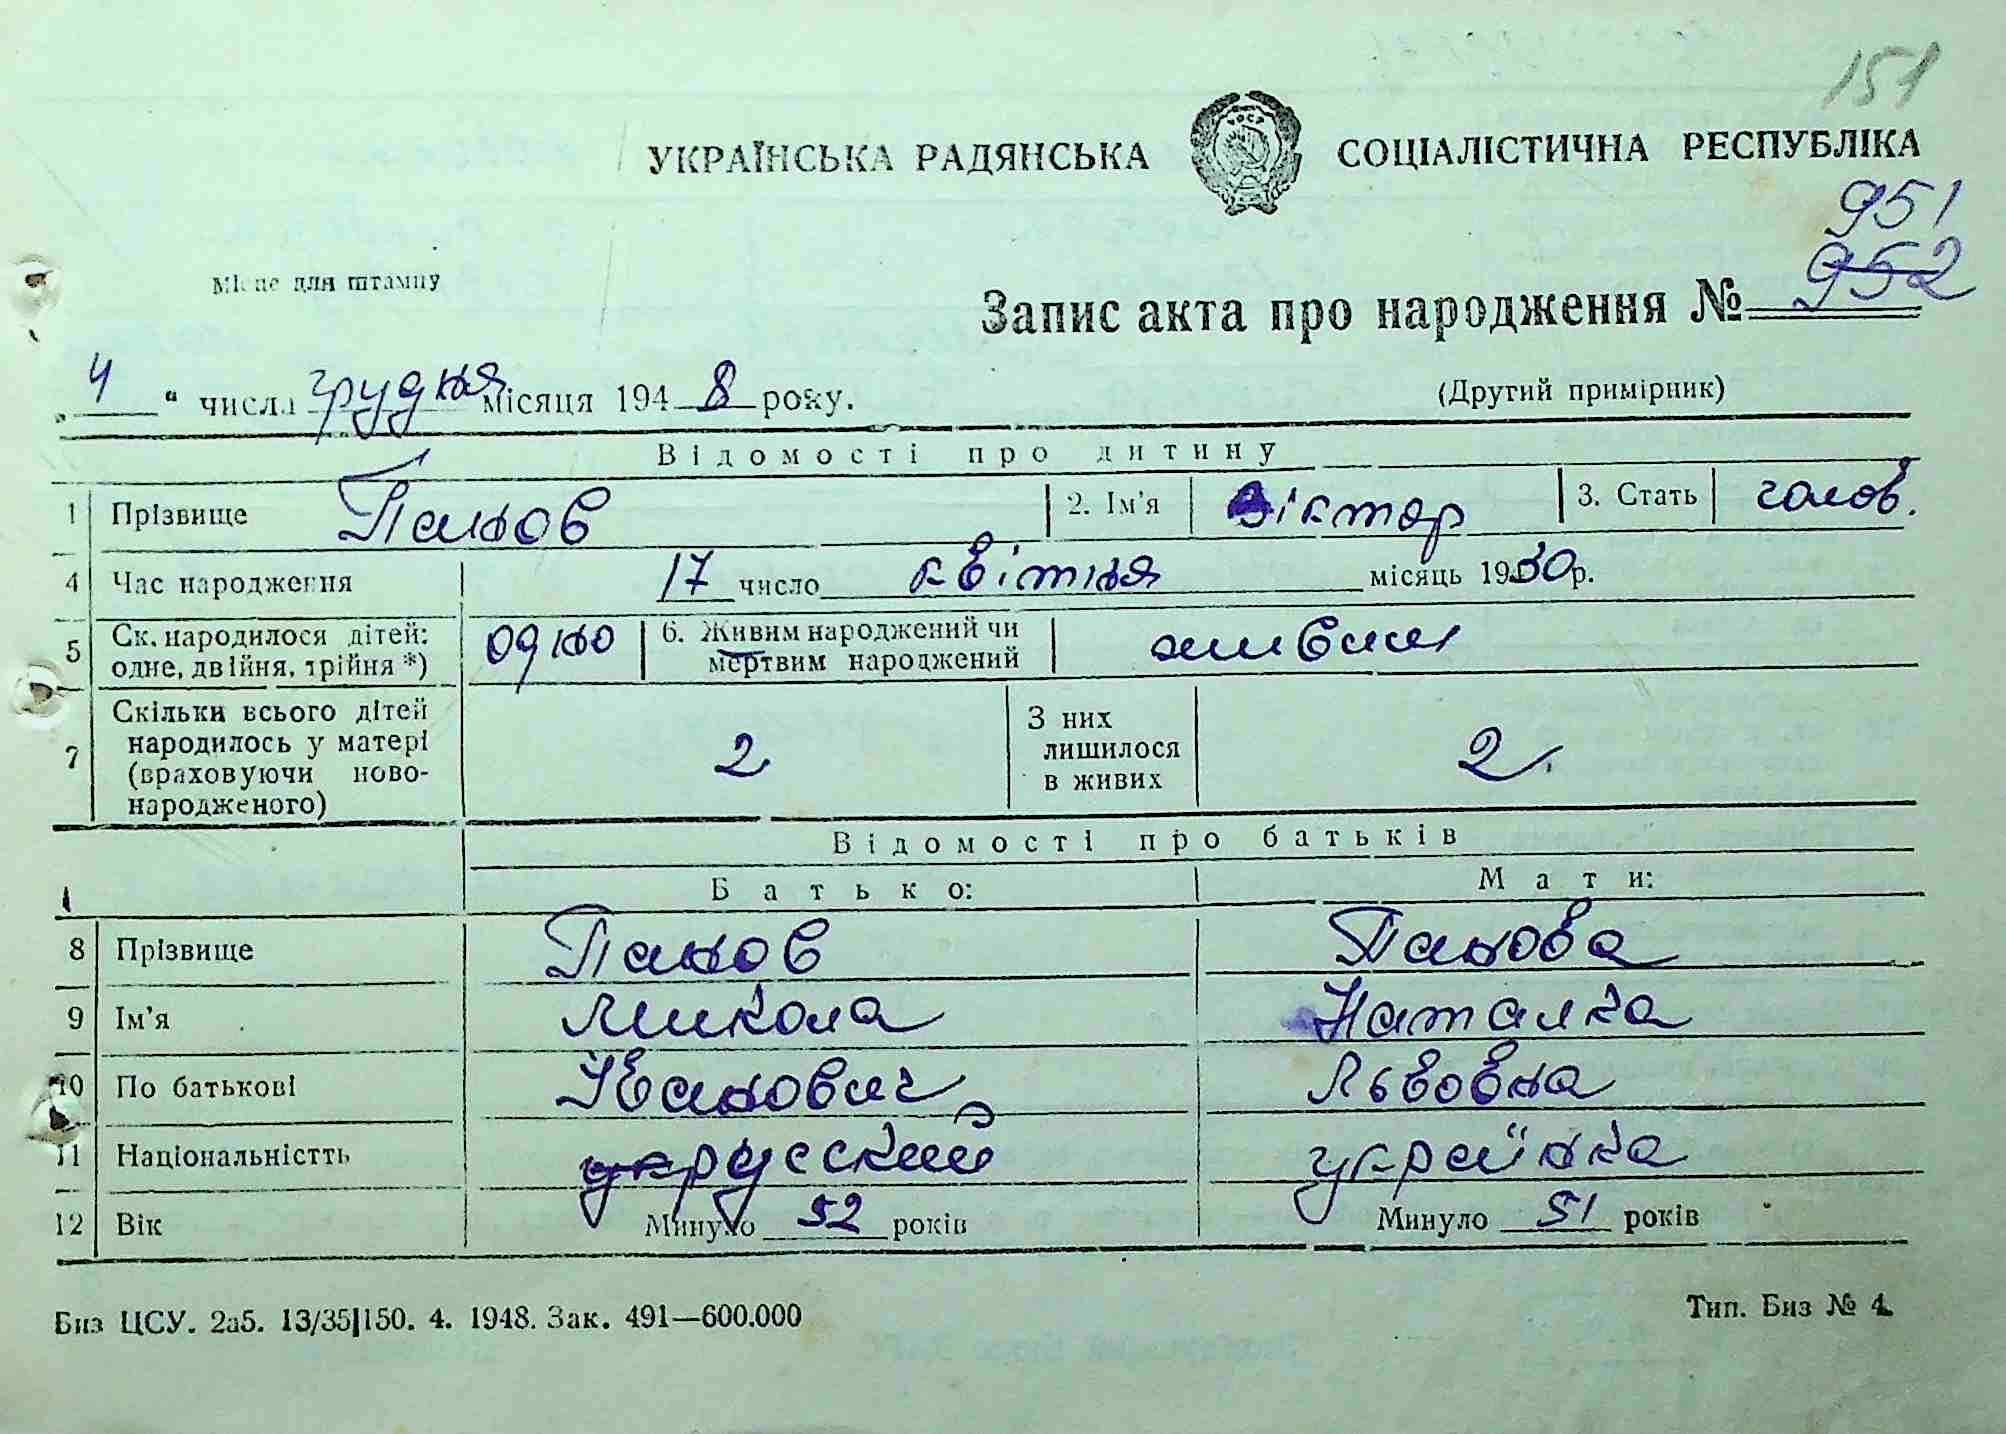 151
УКРАЇНСЬКА РАДЯНСЬКА СОЦІАЛІСТИЧНА РЕСПУБЛІКА
УОСР
951
Місце для штампу
Запис акта про народження № 952
„4“ числа грудня місяця 1948 року.
(Другий примірник)
Відомості про дитину
1 Прізвище Панов 2. Ім'я Віктор 3. Стать голов.
4 Час народження 17 число квітня місяць 1930р.
5 Ск. народилося дітей: одно 6. Живим народжений чи живим
одне, двійня, трійня *) мертвим народжений
7 Скільки всього дітей 2 З них 2.
народилось у матері лишилося
(враховуючи ново- в живих
народженого)
Відомості про батьків
Батько: Мати:
8 Прізвище Панов Панова
9 Ім'я Микола Наталка
10 По батькові Іванович Львовна
11 Національністть укр русский українка
12 Вік Минуло 52 років Минуло 51 років
Биз ЦСУ. 2а5. 13/35|150. 4. 1948. Зак. 491—600.000
Тип. Биз № 4.